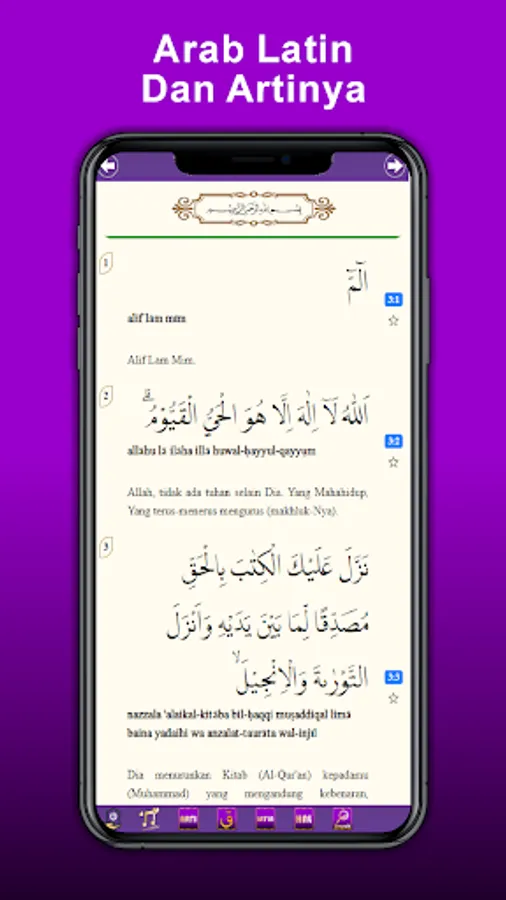 Arab Latin
Dan Artinya
بسم الله الرحمن الرحيم
1
الۤمّۤ
3:1
alif lām mīm
Alif Lam Mim.
2
اَللّٰهُ لَآ اِلٰهَ اِلَّا هُوَ الْحَيُّ الْقَيُّوْمُۗ
3:2
allāhu lā ilāha illā huwal-ḥayyul-qayyụm
Allah, tidak ada tuhan selain Dia. Yang Mahahidup,
Yang terus-menerus mengurus (makhluk-Nya).
3
نَزَّلَ عَلَيْكَ الْكِتٰبَ بِالْحَقِّ
مُصَدِّقًا لِّمَا بَيْنَ يَدَيْهِ وَاَنْزَلَ
التَّوْرٰىةَ وَالْاِنْجِيْلَۙ
3:3
nazzala 'alaikal-kitāba bil-ḥaqqi muṣaddiqal limā
baina yadaihi wa anzalat-taurāta wal-injīl
Dia menurunkan Kitab (Al-Qur'an) kepadamu
(Muhammad) yang mengandung kebenaran,
ق